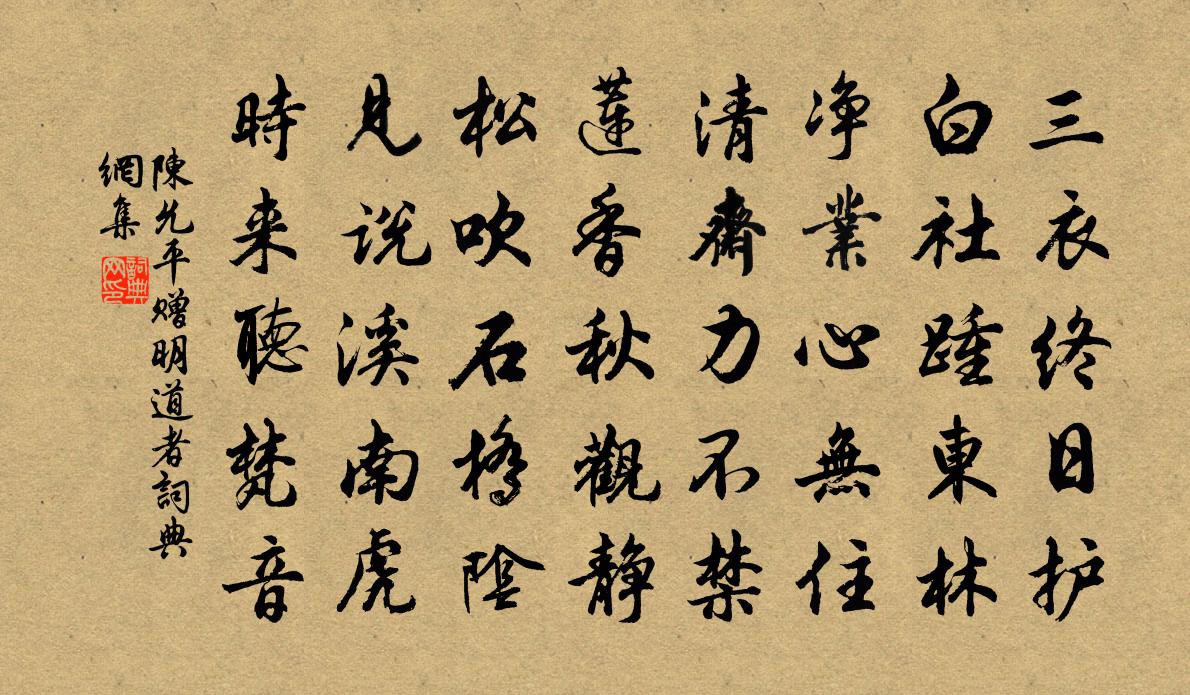 三衣终日护
白社踵東林
净業心無住
清齋力不禁
蓮香秋觀静
松吹石橋陰
見说溪南虎
時来聽梵音
陳允平赠明道者詞典
網集
詞典
网印